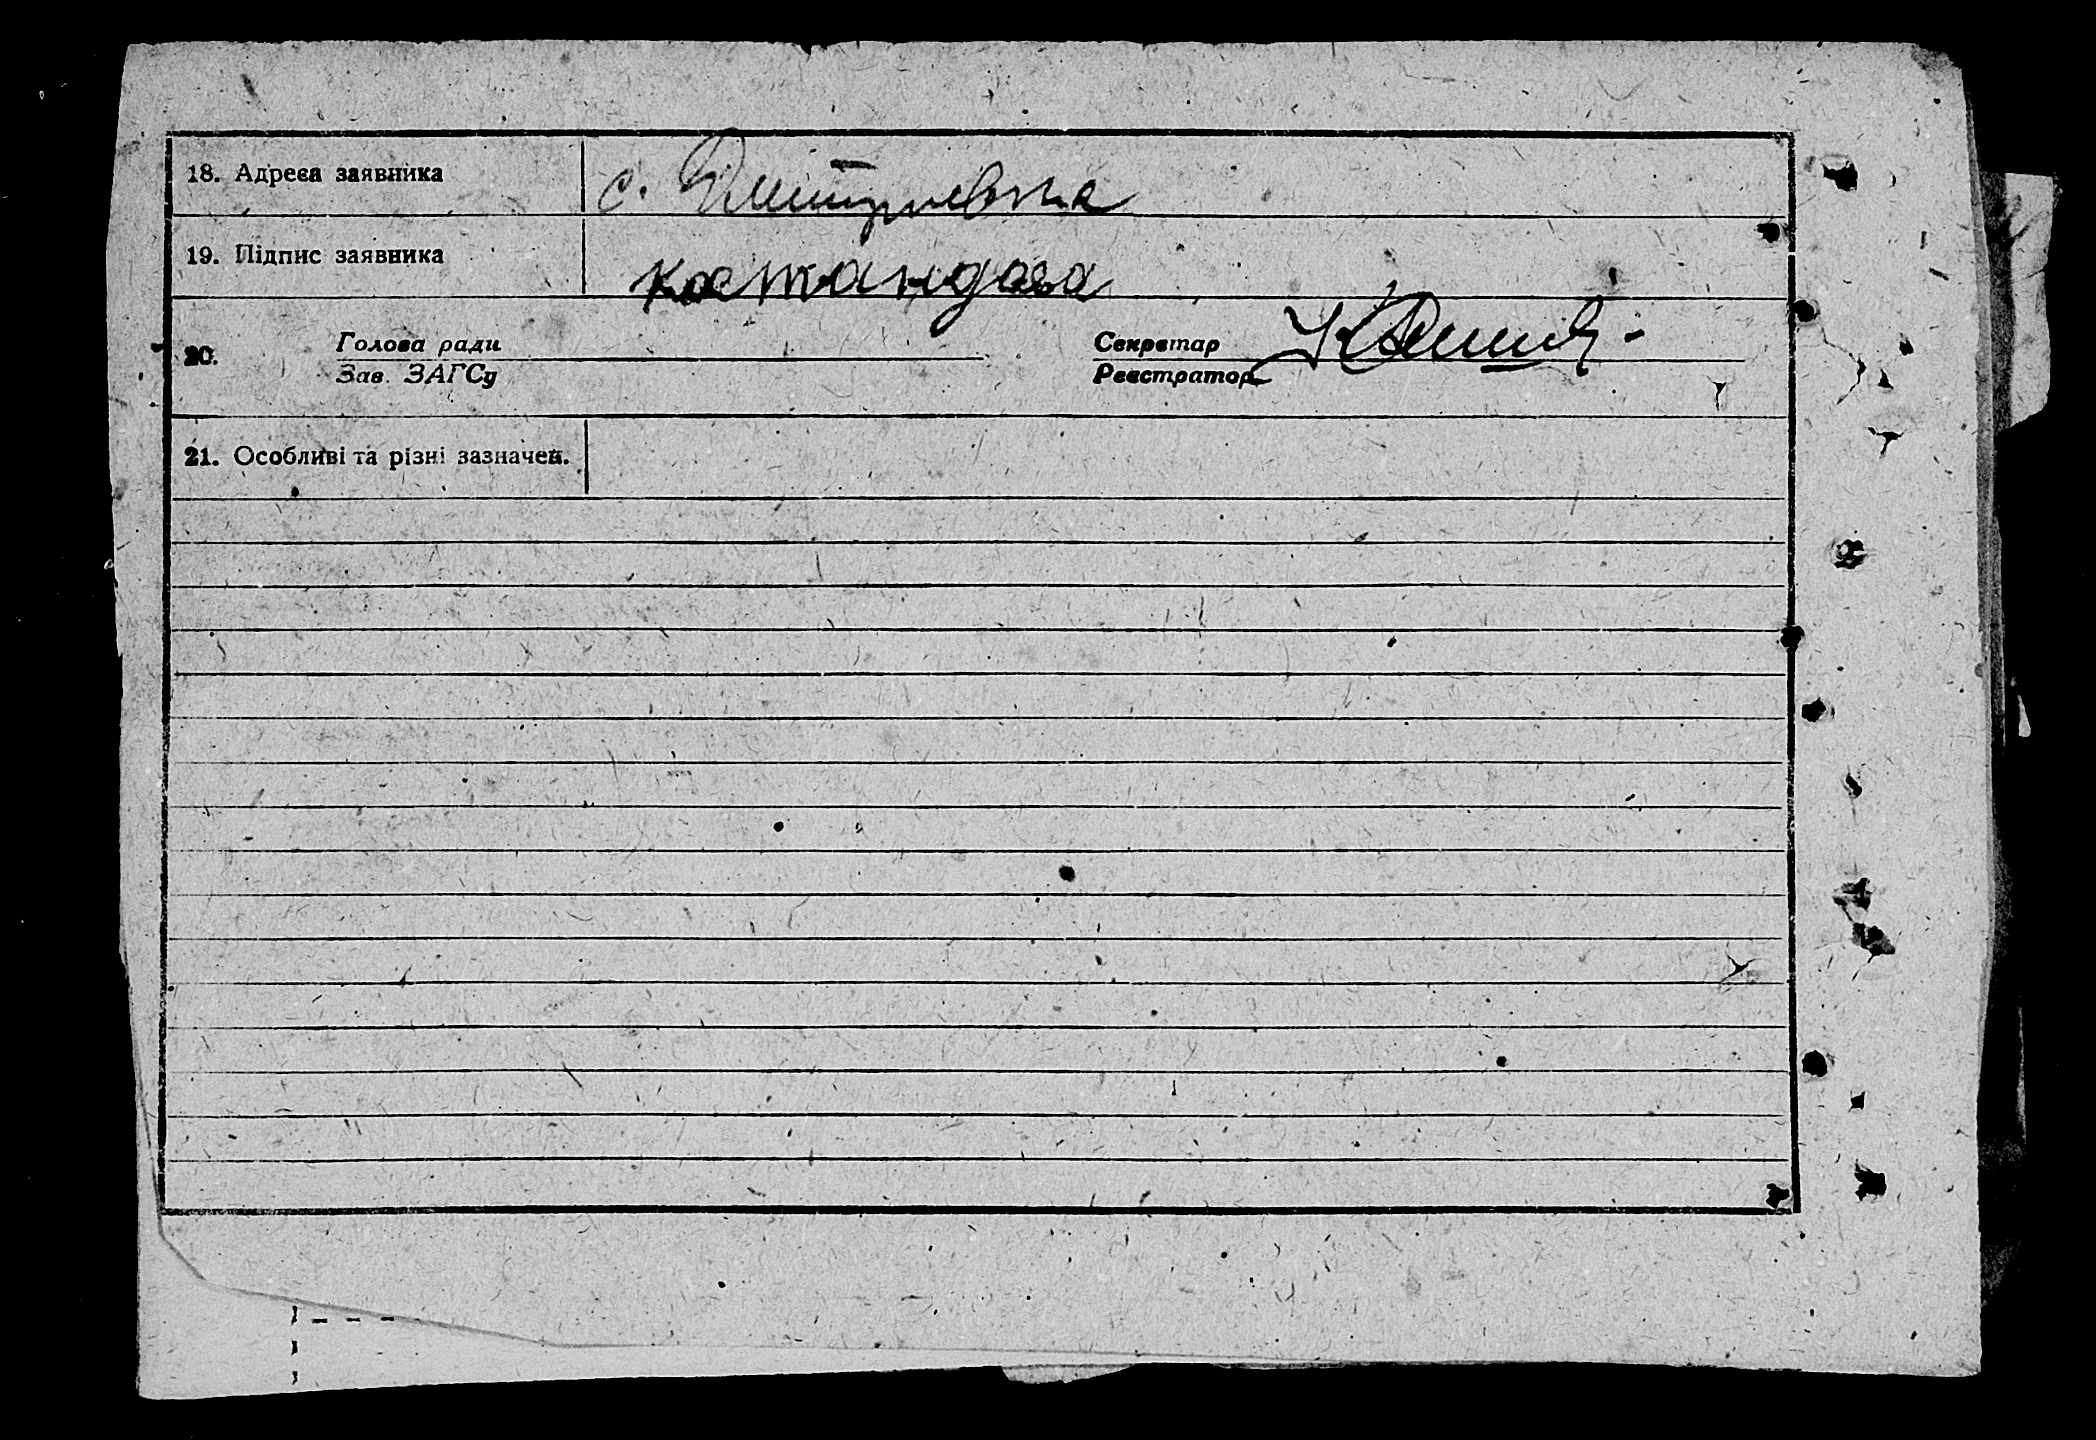 18. Адреса заявника с. Дмитриевка
19. Підпис заявника Костандова
20. Голова ради Секретар
Зав. ЗАГСу Реєстратор
21. Особливі та різні зазначен.